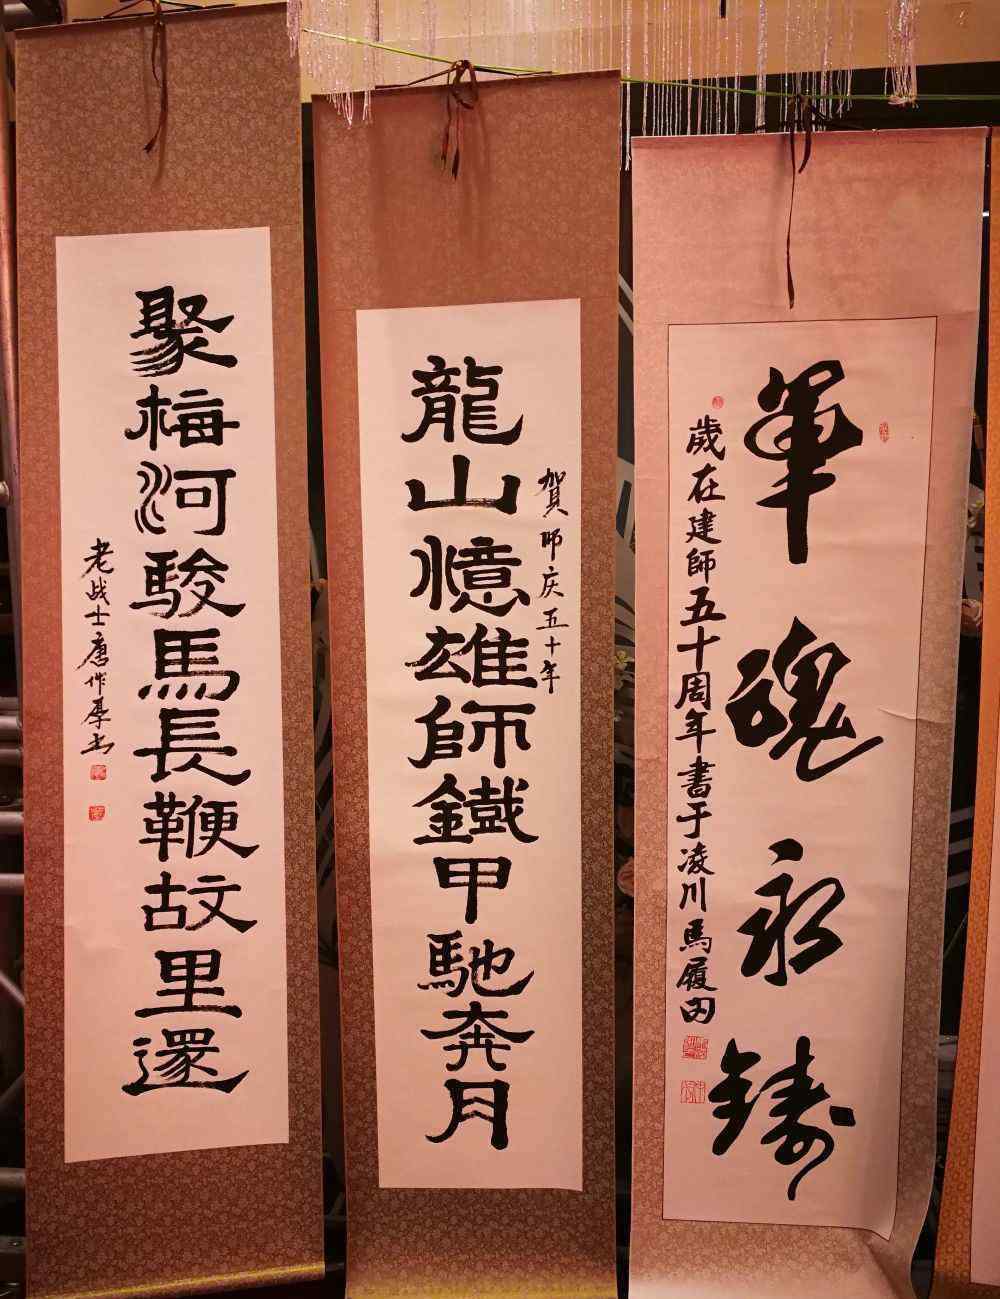 軍魂永鑄
歲在建師五十周年書于凌川馬履田
賀師庆五十年
龍山憶雄師鐵甲馳奔月
聚梅河駿馬長鞭故里還
老战士唐作厚书